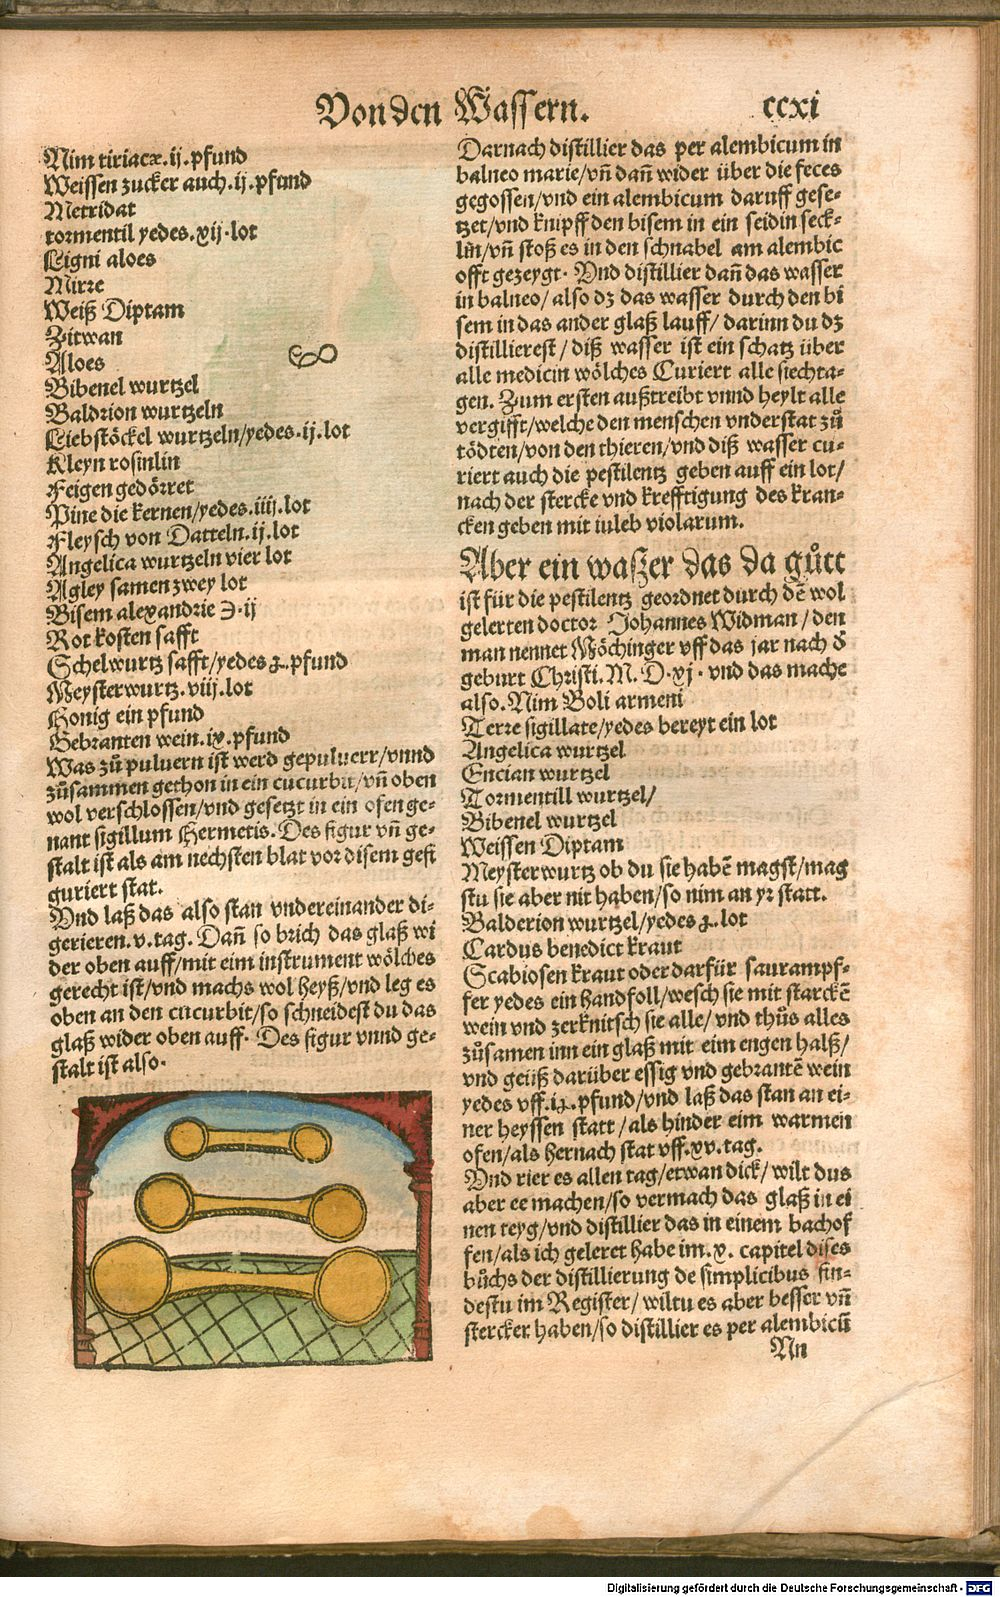 Von den Wassern.
ccxi
Nim tiriacæ.ij.pfund
Weissen zucker auch.ij.pfund
Metridat
tormentil yedes.xij.lot
Ligni aloes
Mirre
Weiß Diptam
Zitwan
Aloes
Bibenel wurtzel
Baldrion wurtzeln
Liebstöckel wurtzeln/yedes.ij.lot
Kleyn rosinlin
Feigen gedörret
Pine die kernen/yedes.iiij.lot
Fleysch von Datteln.ij.lot
Angelica wurtzeln vier lot
Agley samen zwey lot
Bisem alexandrie ℈.ij
Rot kosten safft
Schelwurtz safft/yedes ʒ.pfund
Meysterwurtz.viij.lot
Honig ein pfund
Gebranten wein.ix.pfund
Was zů puluern ist werd gepuluerr/vnnd
zůsammen gethon in ein cucurbit/vñ oben
wol verschlossen/vnd gesetzt in ein ofen ge-
nant sigillum Hermetis. Des figur vñ ge-
stalt ist als am nechsten blat vor disem gefi
guriert stat.
Vnd laß das also stan vndereinander di-
gerieren.v.tag. Dañ so brich das glaß wi
der oben auff/mit eim instrument wölches
gerecht ist/vnd machs wol heyß/vnd leg es
oben an den cucurbit/so schneidest du das
glaß wider oben auff. Des figur vnnd ge-
stalt ist also.
Darnach distillier das per alembicum in
balneo marie/vñ dañ wider über die feces
gegossen/vnd ein alembicum daruff gese-
tzet/vnd knipff den bisem in ein seidin seck-
lin/vñ stoß es in den schnabel am alembic
offt gezeygt. Vnd distillier dañ das wasser
in balneo/also dz das wasser durch den bi
sem in das ander glaß lauff/darinn du dz
distillierest/diß wasser ist ein schatz über
alle medicin wölches Curiert alle siechta-
gen. Zum ersten außtreibt vnnd heylt alle
vergifft/welche den menschen vnderstat zů
tödten/von den thieren/vnd diß wasser cu-
riert auch die pestilentz geben auff ein lot/
nach der stercke vnd krefftigung des kran-
cken geben mit iuleb violarum.
Aber ein waszer das da gůtt
ist für die pestilentz geordnet durch dē wol
gelerten doctor Johannes Widman/den
man nennet Möchinger vff das jar nach ð
geburt Christi.M.D.xj.vnd das mache
also. Nim Boli armeni
Terre sigillate/yedes bereyt ein lot
Angelica wurtzel
Encian wurtzel
Tormentill wurtzel/
Bibenel wurtzel
Weissen Diptam
Meysterwurtz ob du sie habē magst/mag
stu sie aber nit haben/so nim an yr statt.
Balderion wurtzel/yedes ʒ.lot
Cardus benedict kraut
Scabiosen kraut oder darfür saurampf-
fer yedes ein handfoll/wesch sie mit starckē
wein vnd zerknitsch sie alle/vnd thůs alles
zůsamen inn ein glaß mit eim engen halß/
vnd geüß darüber essig vnd gebrantē wein
yedes vff.iʒ.pfund/vnd laß das stan an ei-
ner heyssen statt/als hinder eim warmen
ofen/als hernach stat vff.xv.tag.
Vnd rier es allen tag/etwan dick/wilt dus
aber ee machen/so vermach das glaß in ei
nen teyg/vnd distillier das in einem bachof
fen/als ich geleret habe im.x. capitel dises
bůchs der distillierung de simplicibus fin-
destu im Register/wiltu es aber besser vñ
stercker haben/so distillier es per alembicū
Nn
Digitalisierung gefördert durch die Deutsche Forschungsgemeinschaft - DFG